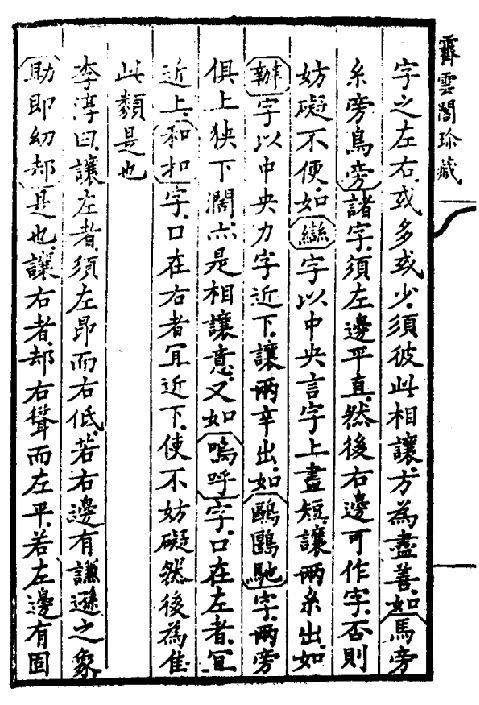 霽雲閣珍藏
字之左右或多或少須彼此相讓方為盡善如馬旁
糸旁鳥旁諸字須左邊平直然後右邊可作字否則
妨礙不便如䜌字以中央言字上畫短讓兩糸出如
辦字以中央力字近下讓兩辛出如鷗鷗馳字兩旁
俱上狹下濶亦是相讓意又如嗚呼字口在左者冝
近上和扣字口在右者冝近下使不妨礙然後為佳
此類是也
李淳曰讓左者須左昂而右低若右邊有謙遜之象
助即幼却是也讓右者却右聳而左平若左邊有固